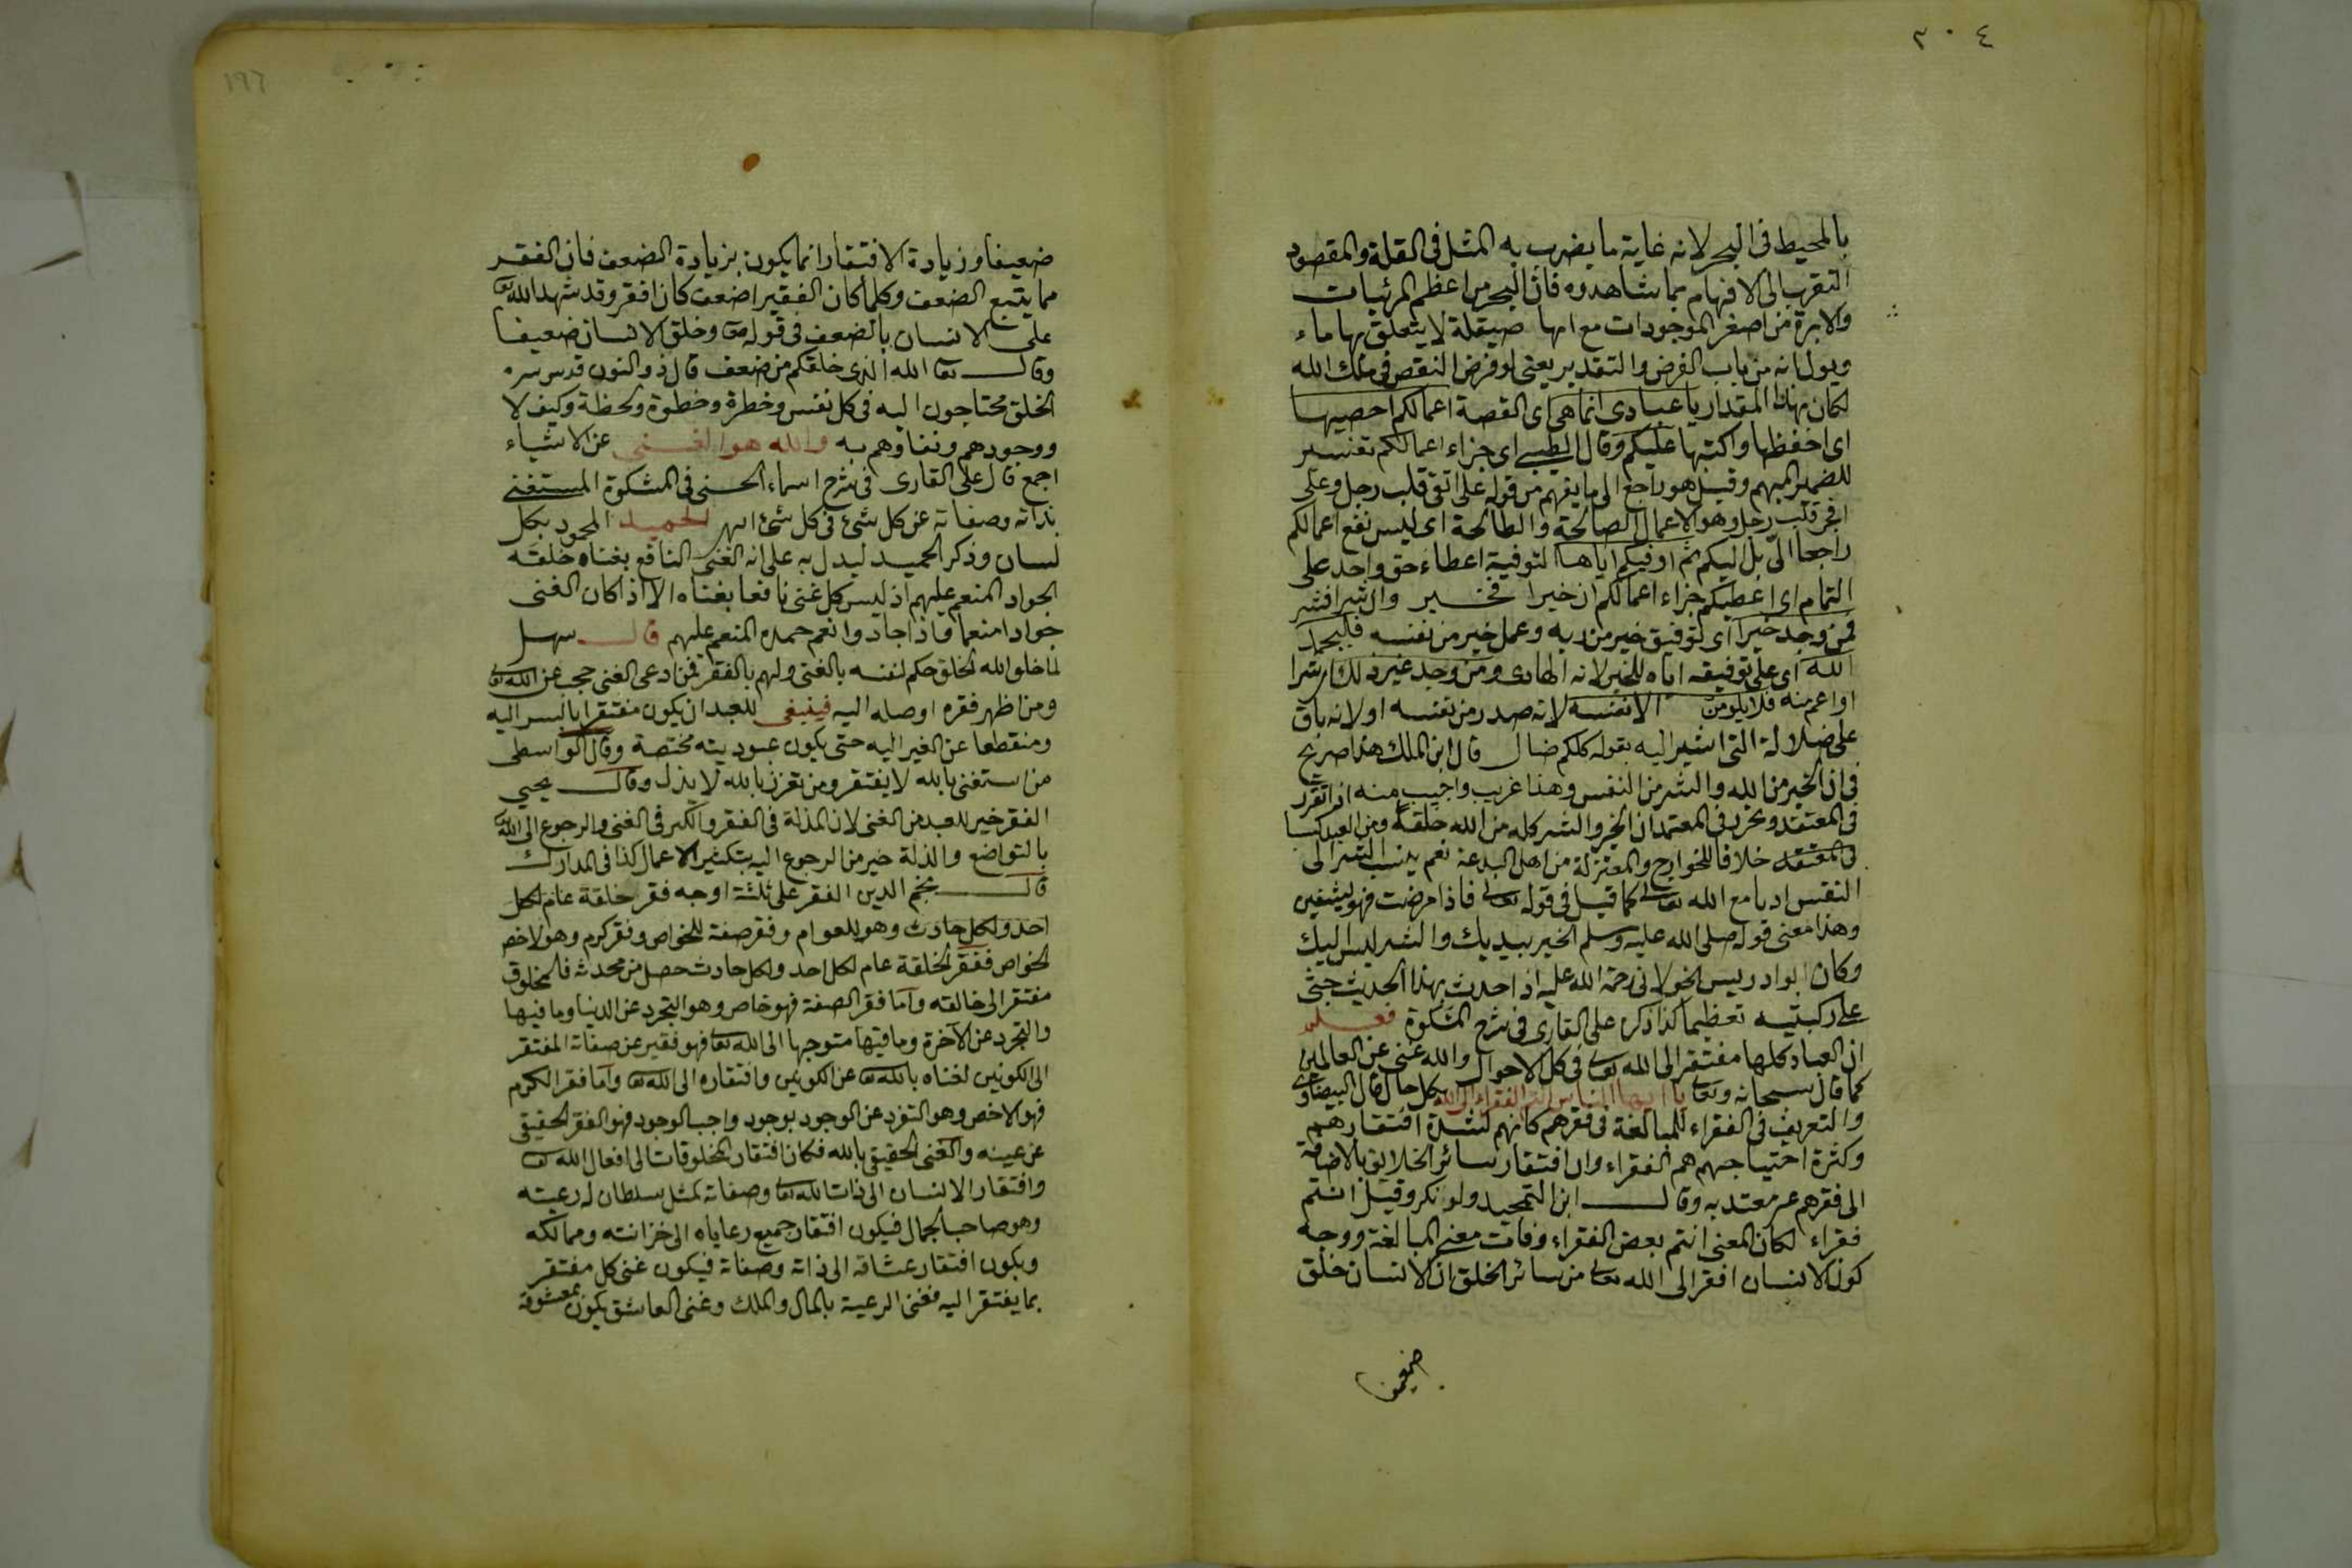 ٢٠٤
بالمحيط فى البحر لانه غاية ما يضرب به المثل فى القلة والمقصود
التقرب الى الافهام بما شاهدوه فان البحر من اعظم المرئيات
والابرة من اصغر الموجودات مع انها صيقلة لا يتعلق بها ماء
ويول انه من باب الفرض والتقدير يعنى لو فرض النقص فى ملك الله
لكان بهذا المقدار يا عبادى انما هى اى القصة اعمالكم احصيها
اى احفظها واكتبها عليكم وقال الطيبى اى جزاء اعمالكم تفسير
للضمير المبهم وقيل هو راجع الى ما يفهم من قوله على اتقى قلب رجل وعلى
افجر قلب رجل وهو الاعمال الصالحة والطالحة اى ليس نفع اعمالكم
راجعا الىّ بل اليكم ثم اوفيكم اياها التوفية اعطاء حق واحد على
التمام اى اعطيكم جزاء اعمالكم ان خيرا فخير وان شرا فشر
فمن وجد خيرا اى توفيق خير من ربه وعمل خير من نفسه فليحمد
الله اى على توفيقه اياه للخير لانه الهادى ومن وجد غير ذلك اى شرا
او اعم منه فلا يلومن الا نفسه لانه صدر من نفسه او لانه باق
على ضلالة التى اشير اليه بقوله كلكم ضال قال ابن الملك هذا صريح
فى ان الخير من الله والشر من النفس وهذا غريب واجيب منه اذ تقرر
فى المعتقد وتحرر فى المعتمد ان الخير والشر كله من الله خلقة ومن العبد كسبا
فى المعتقد خلافا للخوارج والمعتزلة من اهل البدعة نعم ينسب الشر الى
النفس ادبا مع الله تعالى كما قيل فى قوله تعالى فاذا مرضت فهو يشفين
وهذا معنى قوله صلى الله عليه وسلم الخير بيديك والشر ليس اليك
وكان ابو ادريس الخولانى رحمة الله عليه اذا حدث بهذا الحديث جثى
على ركبتيه تعظيما كذا ذكره على القارى فى شرح المشكوة فعلم
ان العباد كلها مفتقر الى الله تعالى فى كل الاحوال والله غنى عن العالمين
كما قال سبحانه وتعالى يا ايها الناس انتم الفقراء الى الله بكل حال قال البيضاوى
والتعريف فى الفقراء للمبالغة فى فقرهم كانهم لشدة افتقارهم
وكثرة احتياجهم هم الفقراء وان افتقار سائر الخلائق بالاضافة
الى فقرهم غير معتد به وقال ابن التمجيد ولو نكر وقيل انتم
فقراء لكان المعنى انتم بعض الفقراء وفات معنى المبالغة ووجه
كون الانسان افقر الى الله تعالى من سائر الخلق ان الانسان خلق
١٩٦
ضعيفا وزيادة الافتقار انما يكون بزيادة الضعف فان الفقر
مما يتبع الضعف وكلما كان الفقير اضعف كان افقر وقد شهد الله تع
على الانسان بالضعف فى قوله تع وخلق الانسان ضعيفا
وقال تعا الله الذى خلقكم من ضعف قال ذو النون قدس سره
الخلق محتاجون اليه فى كل نفس وخطرة وخطوة ولحظة وكيف لا
ووجودهم وبقاؤهم به والله هو الغنى عن الاشياء
اجمع قال على القارى فى شرح اسماء الحسنى فى المشكوة المستغنى
بذاته وصفاته عن كل شئ فى كل شئ انتهى الحميد المحمود بكل
لسان وذكر الحميد ليدل به على انه الغنى النافع بغناه خلقه
الجواد المنعم عليهم اذ ليس كل غنى نافعا بغناه الا اذا كان الغنى
جوادا منعما فاذا جاد وانعم حمده المنعم عليهم قال سهل
لما خلق الله الخلق حكم لنفسه بالغنى ولهم بالفقر فمن ادعى الغنى حجب عن الله تعا
ومن اظهر فقره اوصله اليه فينبغى للعبد ان يكون مفتقرا بالسر اليه
ومنقطعا عن الغير اليه حتى يكون عبوديته مختصة وقال الواسطى
من استغنى بالله لا يفتقر ومن تعزز بالله لا يذل وقال يحيى
الفقر خير للعبد من الغنى لان المذلة فى الفقر والكبر فى الغنى والرجوع الى الله تعا
بالتواضع والذلة خير من الرجوع اليه بتكثير الاعمال كذا فى المدارك
قال نجم الدين الفقر على ثلثة اوجه فقر خلقة عام لكل
احد ولكل حادث وهو للعوام وفقر صفة للخواص وفقر كرم وهو لاخص
الخواص ففقر الخلقة عام لكل احد ولكل حادث حصل من محدثه فالمخلوق
مفتقر الى خالقه واما فقر الصفة فهو خاص وهو التجرد عن الدنيا وما فيها
والتجرد عن الآخرة وما فيها متوجها الى الله تعا فهو فقير عن صفاته المفتقر
الى الكونين لغناه بالله تع عن الكونين وافتقاره الى الله تع واما فقر الكرم
فهو الاخص وهو التفرد عن الوجود بوجود واجب الوجود فهو الفقر الحقيقى
عن عينه والغنى الحقيقى بالله فكان افتقار المخلوقات الى افعال الله تع
وافتقار الانسان الى ذات الله تعا وصفاته كمثل سلطان له رعيته
وهو صاحب الجمال فيكون افتقار جميع رعاياه الى خزانته وممالكه
ويكون افتقار عشاقه الى ذاته وصفاته فيكون غنى كل مفتقر
بما يفتقر اليه فغنى الرعية بالمال والملك وغنى العاشق يكون بمعشوقه